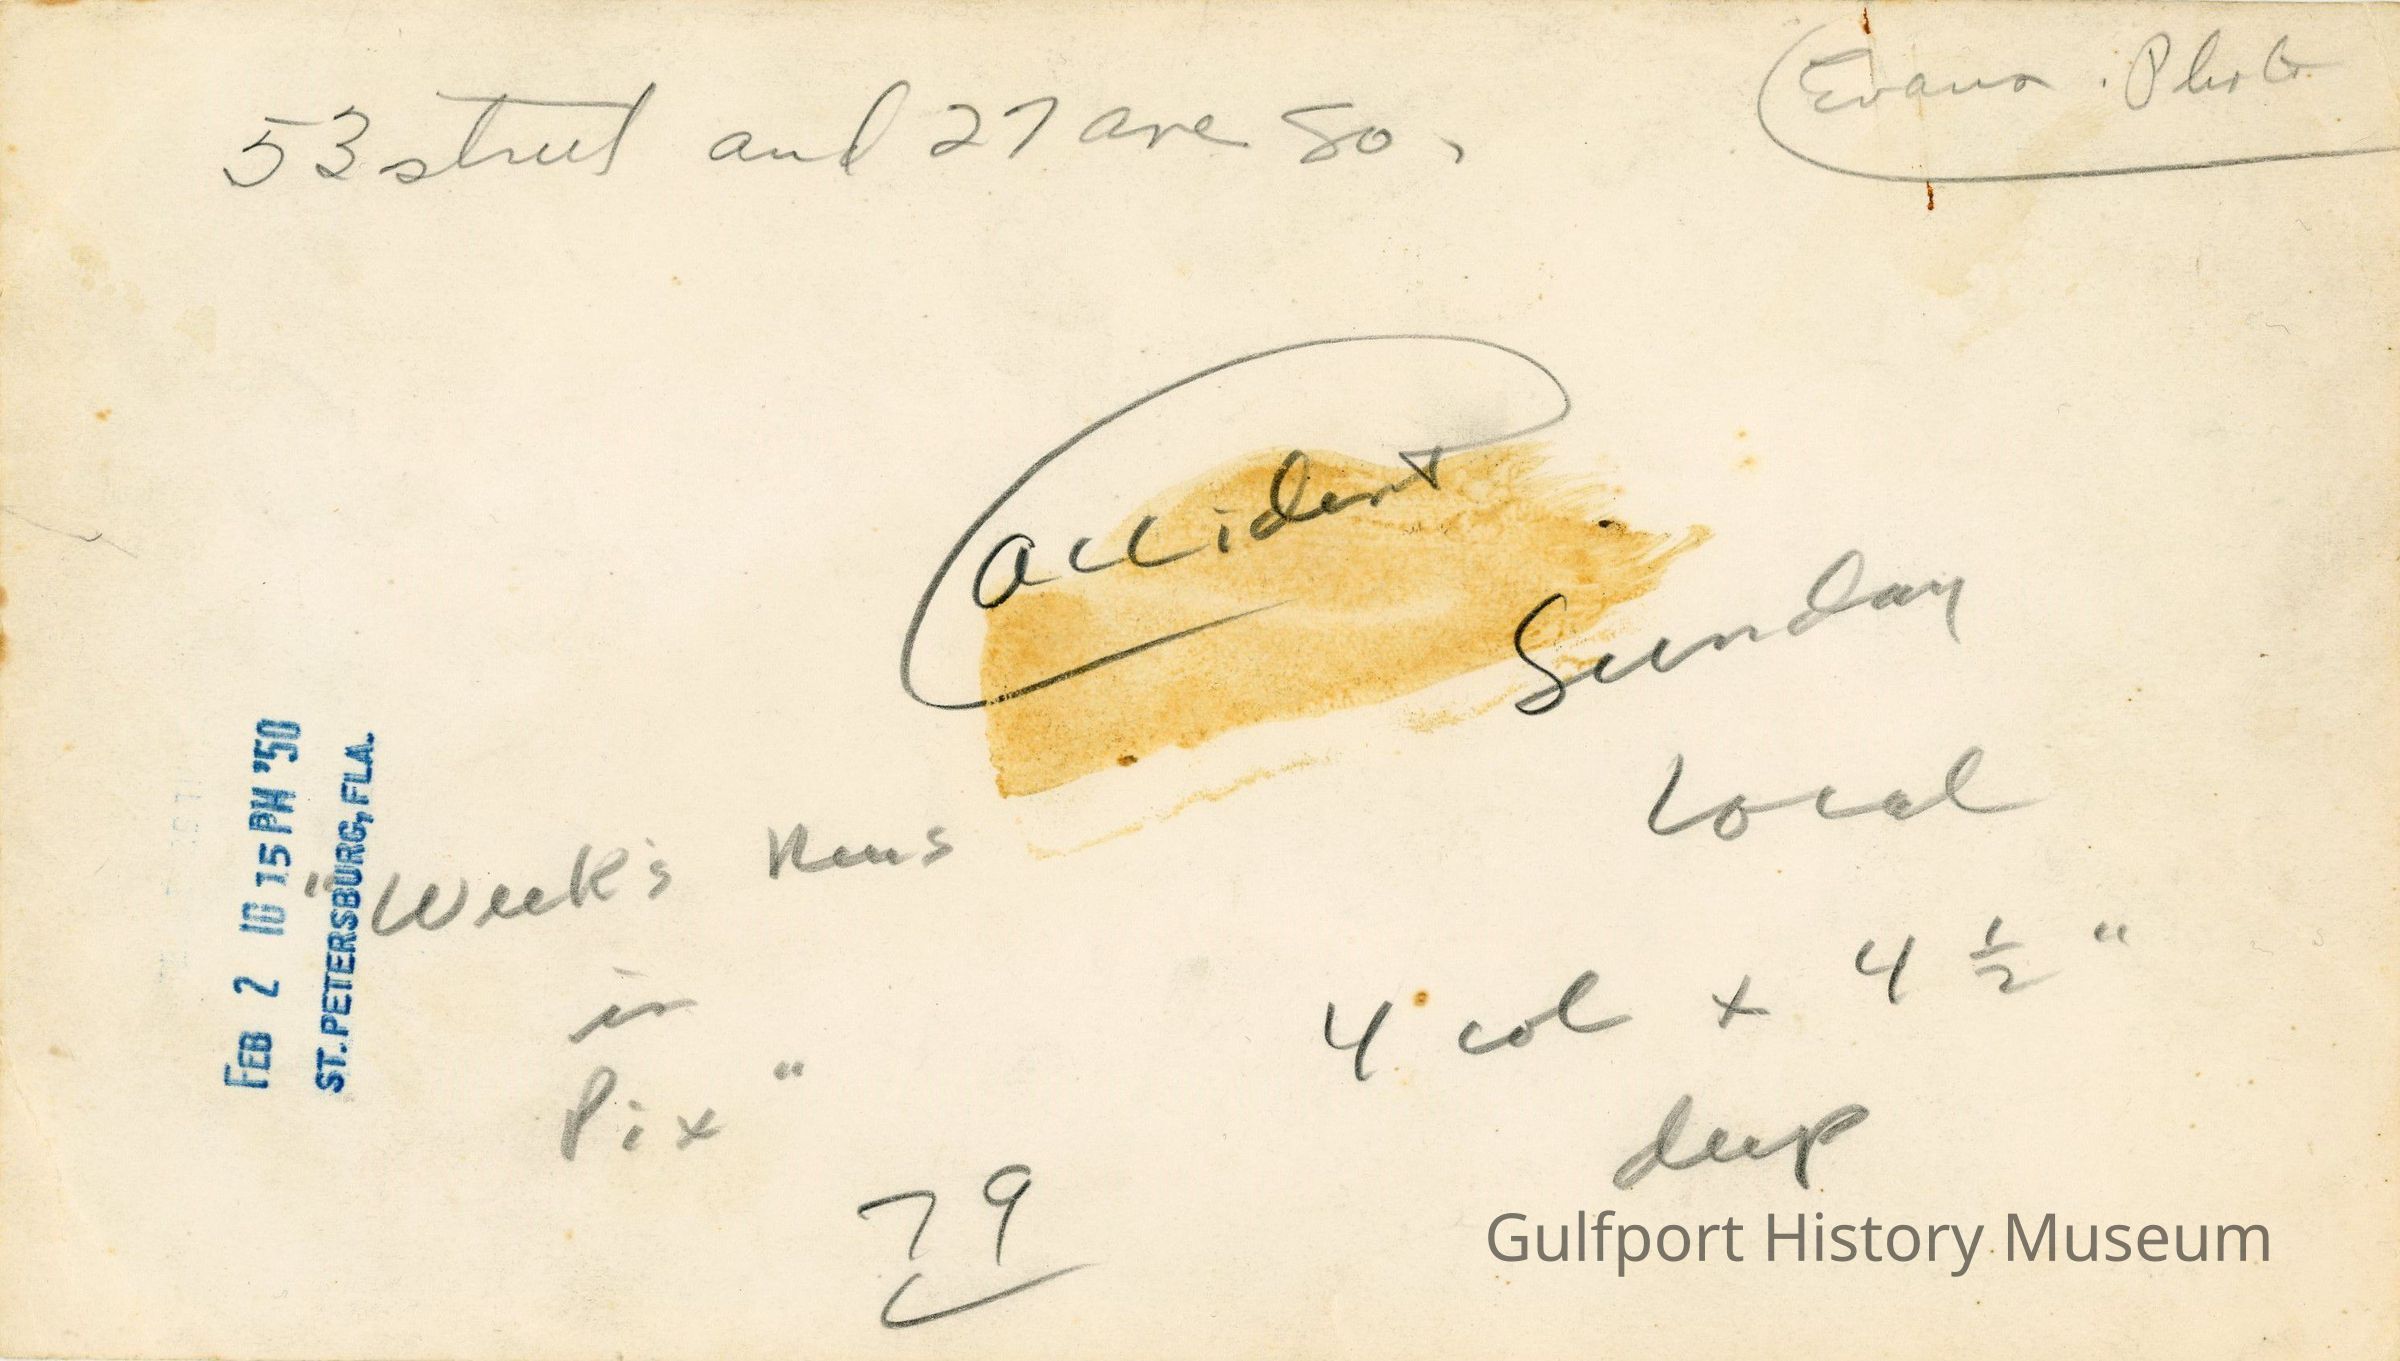 53 street and 27 ave So.
Evans Photo
accident
Sunday
Local
FEB 2 10 15 PM '50
ST. PETERSBURG, FLA.
"Week's News
in
Pix"
4 col x 4 1/2"
deep
79
Gulfport History Museum